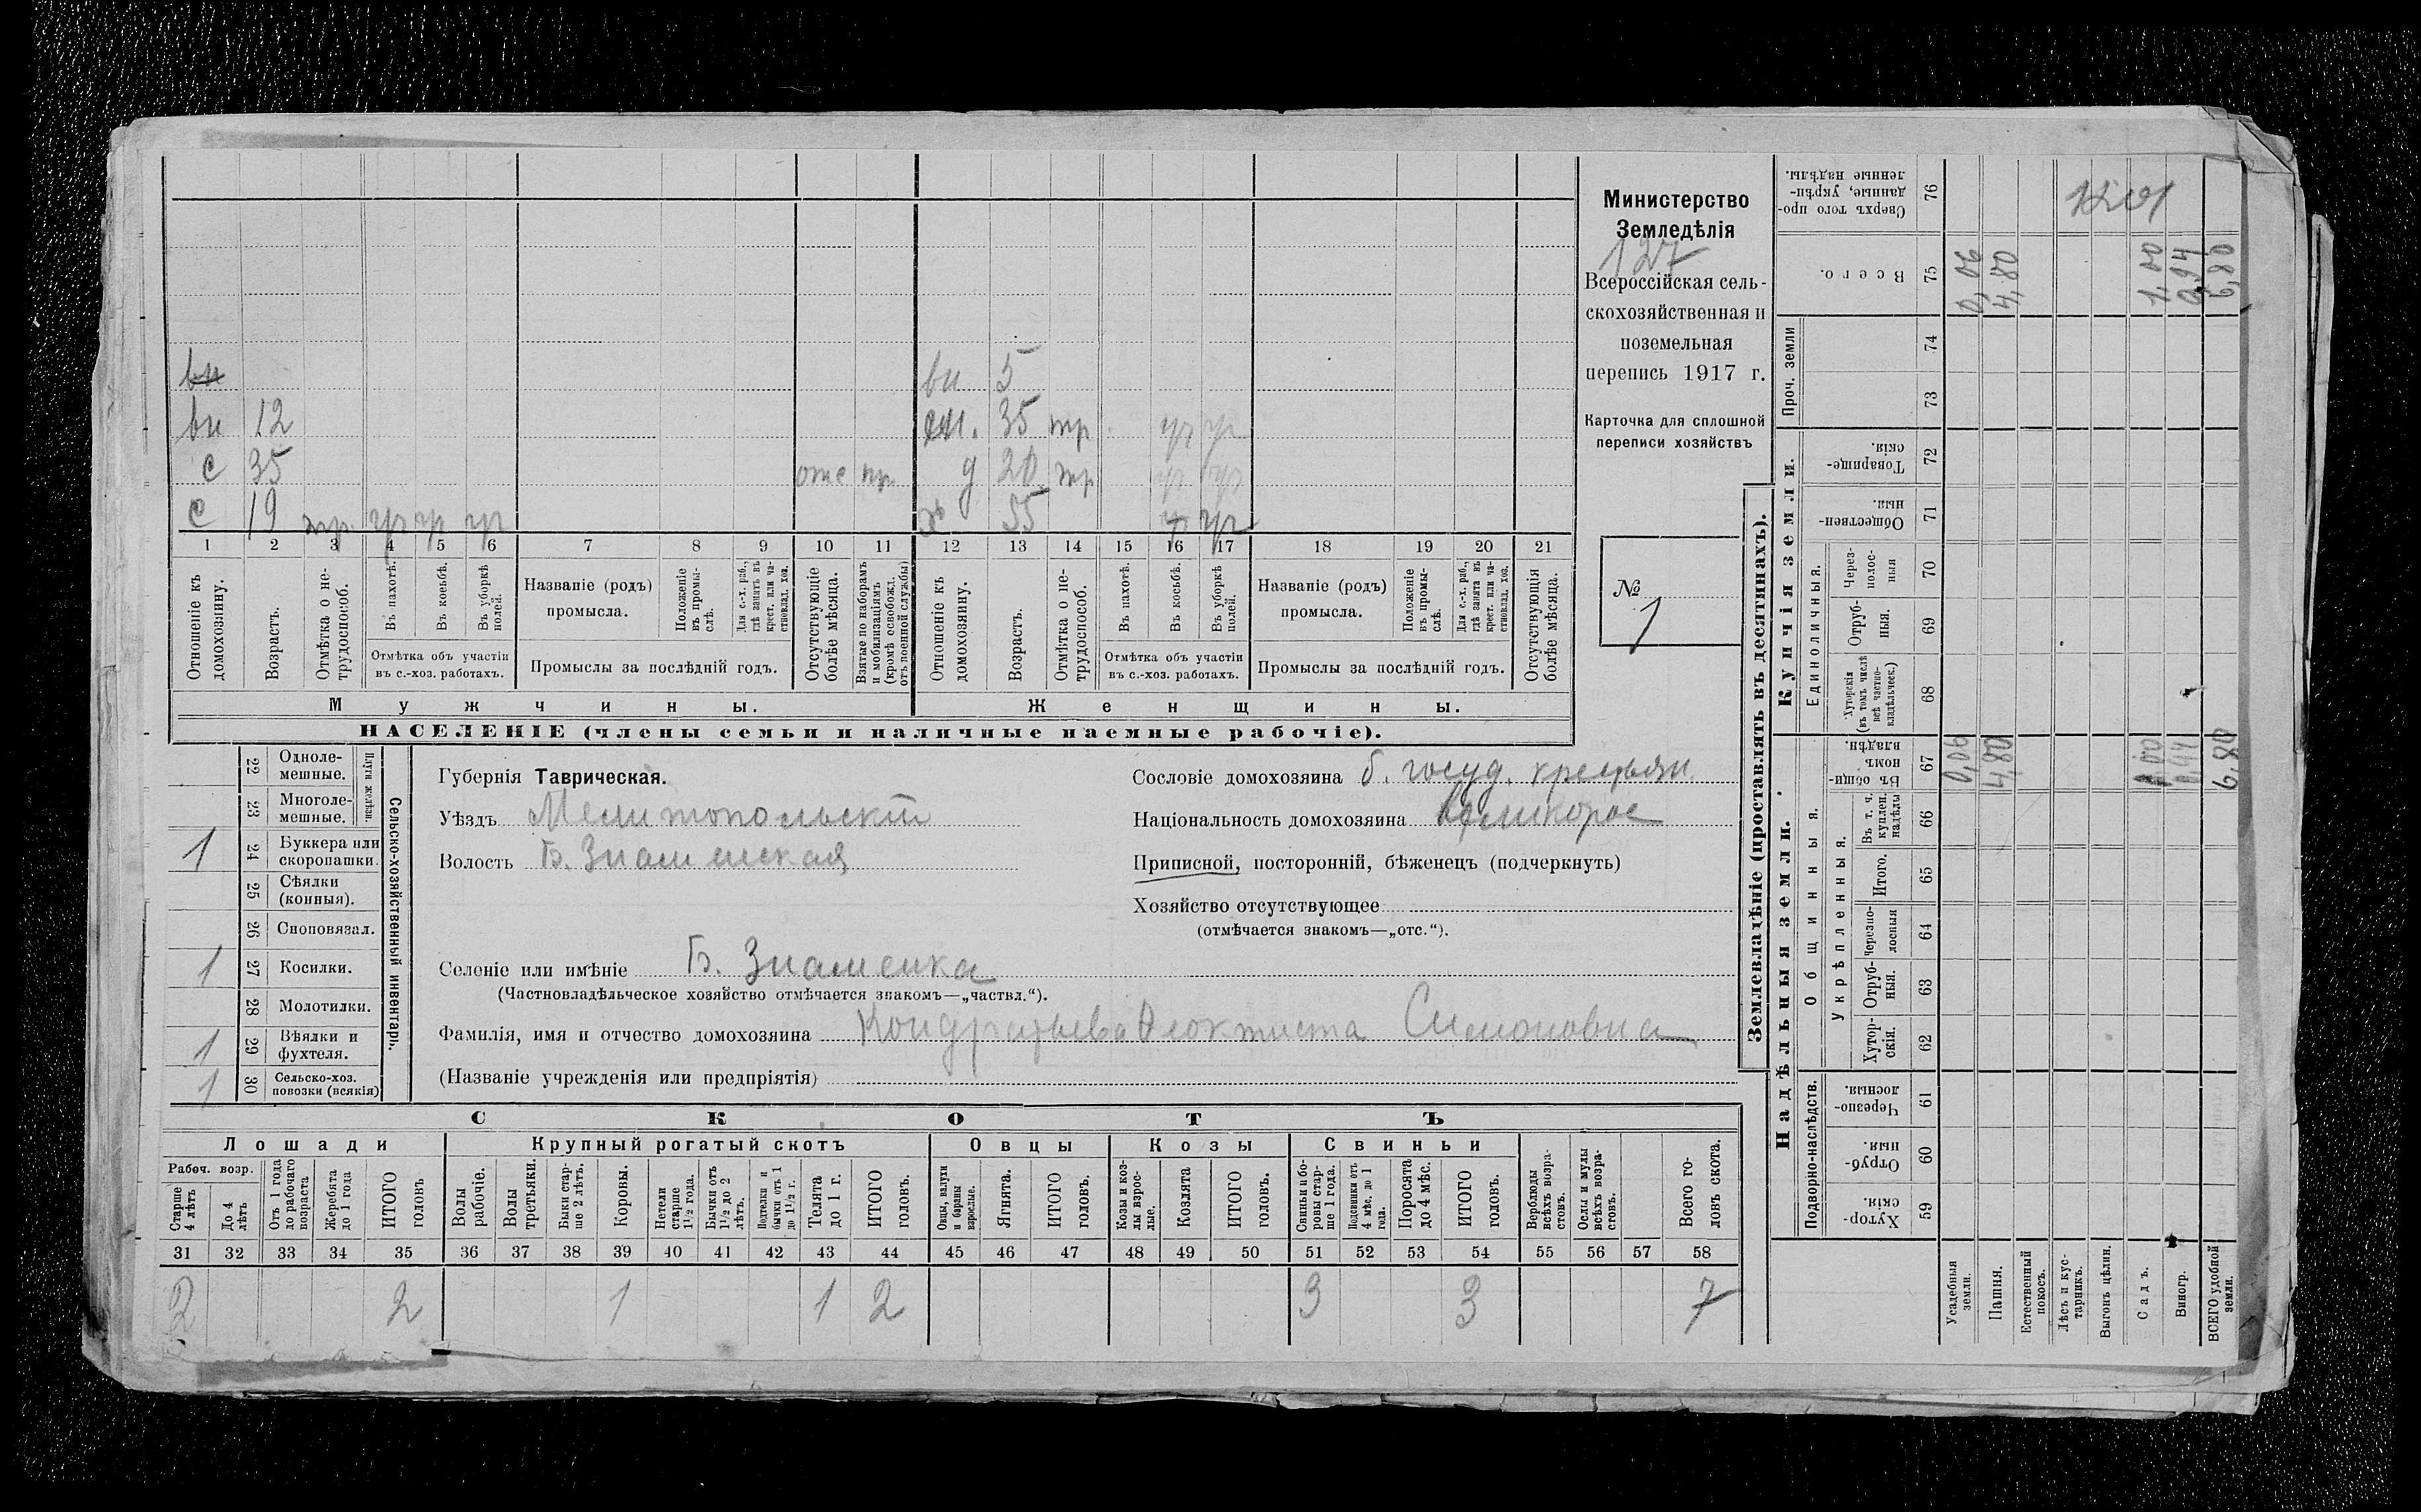 Министерство
Земледѣлія
127
Всероссійская сель-
скохозяйственная и
поземельная
перепись 1917 г.
Карточка для сплошной
переписи хозяйствъ
№
1
вн
вн 5
вн 12
см. 35 тр
с 35 отс
д 20 тр
с 19 тр
55
1 2 3 4 5 6 7 8 9 10 11 12 13 14 15 16 17 18 19 20 21
Отношеніе къ домохозяину.
Возрастъ.
Отмѣтка о не-трудоспособ.
Въ пахотѣ.
Въ косьбѣ.
Въ уборкѣ полей.
Отмѣтка объ участіи
въ с.-хоз. работахъ.
Названіе (родъ)
промысла.
Положеніе въ промы-слѣ.
Для с.-х. раб., гдѣ занятъ въ крест. или ча-стновлад. хоз.
Промыслы за послѣдній годъ.
Отсутствующіе болѣе мѣсяца.
Взятые по наборамъ и мобилизаціямъ (кромѣ освобожд. отъ военной службы)
Отношеніе къ домохозяину.
Возрастъ.
Отмѣтка о не-трудоспособ.
Въ пахотѣ.
Въ косьбѣ.
Въ уборкѣ полей.
Отмѣтка объ участіи
въ с.-хоз. работахъ.
Названіе (родъ)
промысла.
Положеніе въ промы-слѣ.
Для с.-х. раб., гдѣ занята въ крест. или ча-стновлад. хоз.
Промыслы за послѣдній годъ.
Отсутствующія болѣе мѣсяца.
Мужчины.
Женщины.
НАСЕЛЕНІЕ (члены семьи и наличные наемные рабочіе).
22 Одноле-мешные.
23 Многоле-мешные.
Плуги желѣзн.
1 24 Буккера или скоропашки.
25 Сѣялки (конныя).
26 Сноповязал.
1 27 Косилки.
28 Молотилки.
1 29 Вѣялки и фухтеля.
1 30 Сельско-хоз. повозки (всякія)
Сельско-хозяйственный инвентарь.
Губернія Таврическая.
Уѣздъ Мелитопольскій
Волость Б. Знаменская
Селеніе или имѣніе Б. Знаменка
(Частновладѣльческое хозяйство отмѣчается знакомъ—„частвл.“).
Фамилія, имя и отчество домохозяина Кондратьева Феоктиста Симоновна
(Названіе учрежденія или предпріятія)
Сословіе домохозяина б. госуд. крестьян
Національность домохозяина Великорос
Приписной, посторонній, бѣженецъ (подчеркнуть)
Хозяйство отсутствующее
(отмѣчается знакомъ—„отс.“).
СКОТЪ
Лошади
Крупный рогатый скотъ
Овцы
Козы
Свиньи
Рабоч. возр.
Старше 4 лѣтъ
До 4 лѣтъ
Отъ 1 года до рабочаго возраста
Жеребята до 1 года
ИТОГО головъ
Волы рабочіе.
Волы третьяки.
Быки стар-ше 2 лѣтъ.
Коровы.
Нетели старше 1½ года.
Бычки отъ 1½ до 2 лѣтъ.
Подтелки и бычки отъ 1 до 1½ г.
Телята до 1 г.
ИТОГО головъ.
Овцы, валухи и бараны взрослые.
Ягнята.
ИТОГО головъ.
Козы и коз-лы взрос-лые.
Козлята
ИТОГО головъ.
Свиньи и бо-ровы стар-ше 1 года.
Подсвинки отъ 4 мѣс. до 1 года.
Поросята до 4 мѣс.
ИТОГО головъ.
Верблюды всѣхъ возра-стовъ.
Ослы и мулы всѣхъ возра-стовъ.
Всего го-ловъ скота.
31 32 33 34 35 36 37 38 39 40 41 42 43 44 45 46 47 48 49 50 51 52 53 54 55 56 57 58
2 2 1 1 2 3 3 7
Землевладѣніе (проставлять въ десятинахъ).
Надѣльныя земли.
Купчія земли.
Проч. земли
Подворно-наслѣдств.
Общинныя.
Укрѣпленныя.
Единоличныя.
Сверхъ того про-данные, укрѣп-ленные надѣлы. 76
Всего. 75 0,06 4,80 1,00 0,94 6,80
74
73
Товарище-скія. 72
Обществен-ныя. 71
Через-полос-ныя 70
Отруб-ныя. 69
Хуторскія (въ томъ числѣ всѣ частно-владѣльческ.) 68
Въ общин-номъ владѣн. 67 0,06 4,80 1,00 0,94 6,80
Въ т. ч. куплен. надѣлы 66
Итого. 65
Черезпо-лосныя 64
Отруб-ныя. 63
Хутор-скія. 62
Черезпо-лосныя. 61
Отруб-ныя. 60
Хутор-скія. 59
Усадебныя земли.
Пашня.
Естественный покосъ.
Лѣсъ и кус-тарникъ.
Выгонъ цѣлин.
Садъ.
Виногр.
ВСЕГО удобной земли.